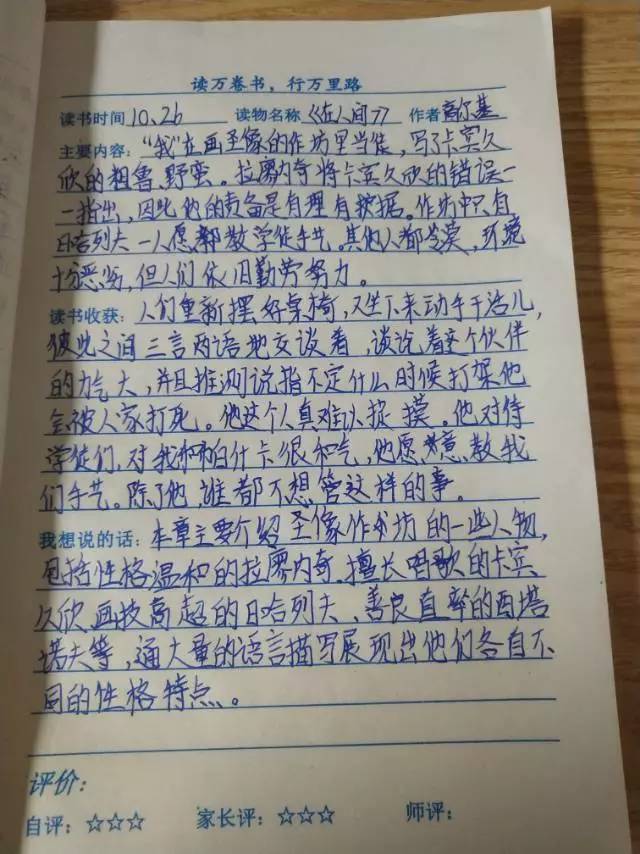 读万卷书，行万里路
读书时间 10、26 读物名称《在人间》 作者 高尔基
主要内容：“我”在画圣像的作坊里当徒，写了卡宾久
欣的粗鲁、野蛮。拉廖内奇将卡宾久欣的错误一
一指出，因此他的责备是有理有掖据。作坊中只有
日哈列夫一人愿教学徒手艺。其他人都冷漠，环境
十分恶劣，但人们依旧勤劳努力。
读书收获：人们重新摆好桌椅，又坐下来动手干活儿，
彼此之间三言两语地交谈着，谈论着这个伙伴
的力气大，并且推测说指不定什么时候打架他
会被人家打死。他这个人真难以捉摸。他对待
学徒们，对我和帕什卡很和气，他愿意教我
们手艺。除了他，谁都不想管这样的事。
我想说的话：本章主要介绍圣像作坊的一些人物，
包括性格温和的拉廖内奇、擅长唱歌的卡宾
久欣画技高超的日哈列夫、善良直率的西塔
诺夫等，通大量的语言描写展现出他们各自不
同的性格特点。
评价：
自评：☆☆☆ 家长评：☆☆☆ 师评：